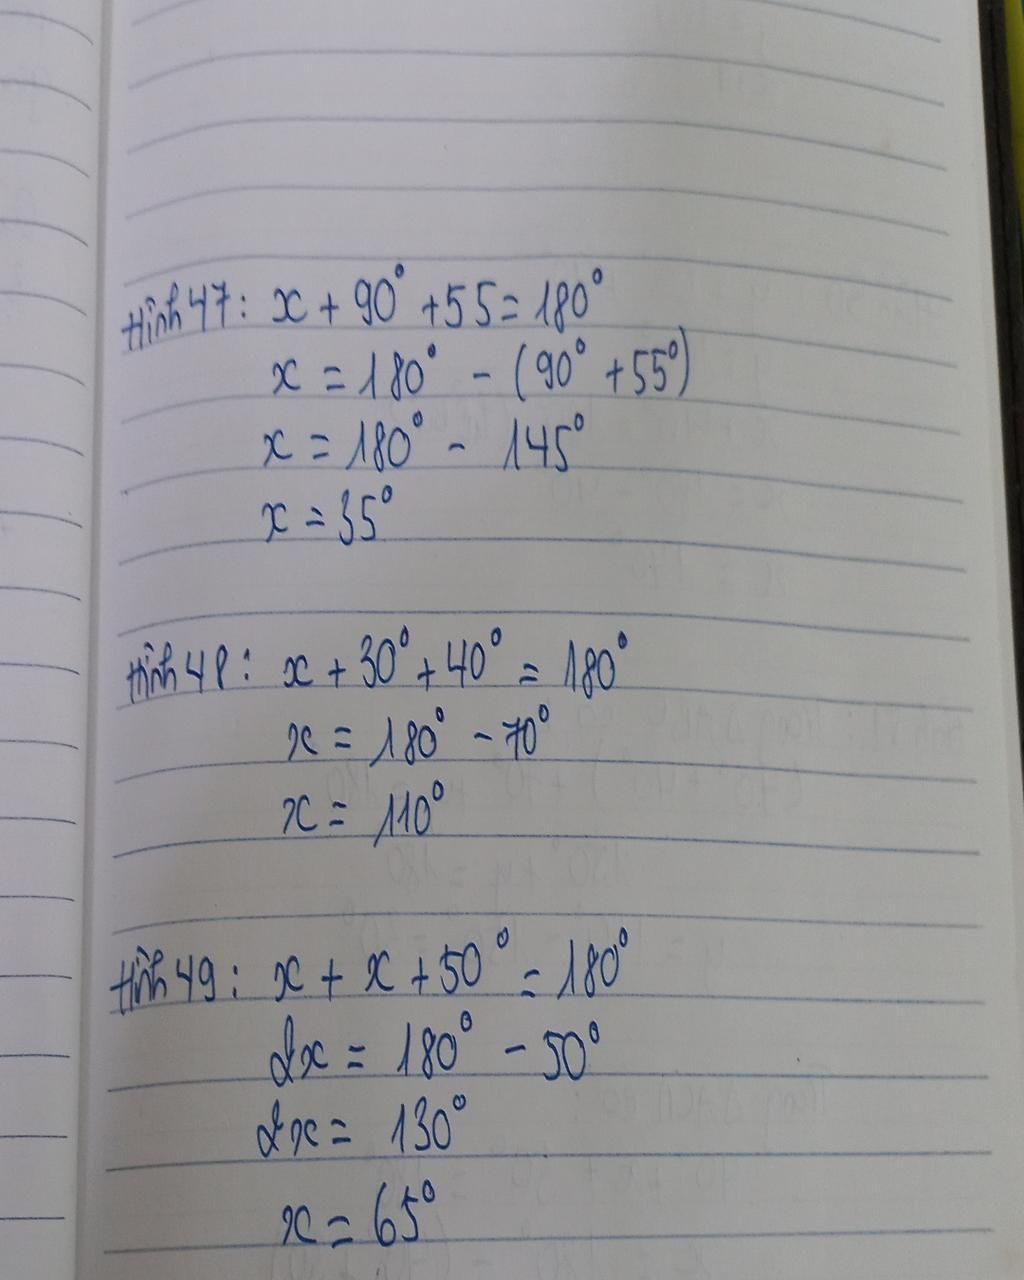 Hình 47: x + 90° + 55 = 180°
x = 180° - (90° + 55°)
x = 180° - 145°
x = 35°
Hình 48: x + 30° + 40° = 180°
x = 180° - 70°
x = 110°
Hình 49: x + x + 50° = 180°
2x = 180° - 50°
2x = 130°
x = 65°